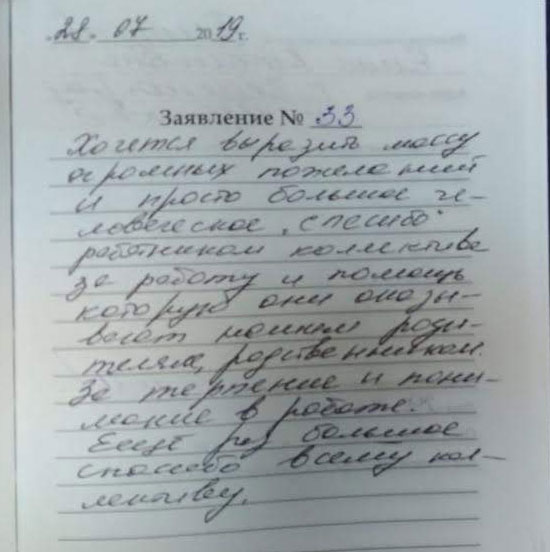 „28" 07 2019 г.
Заявление № 33
Хочется выразить массу
огромных пожеланий
и просто большое че-
ловеческое „спасибо"
работникам коллектива
за работу и помощь
которую они оказы-
вают нашим роди-
телям, родственникам.
За терпение и пони-
мание в работе.
Ещё раз большое
спасибо всему кол-
лективу.